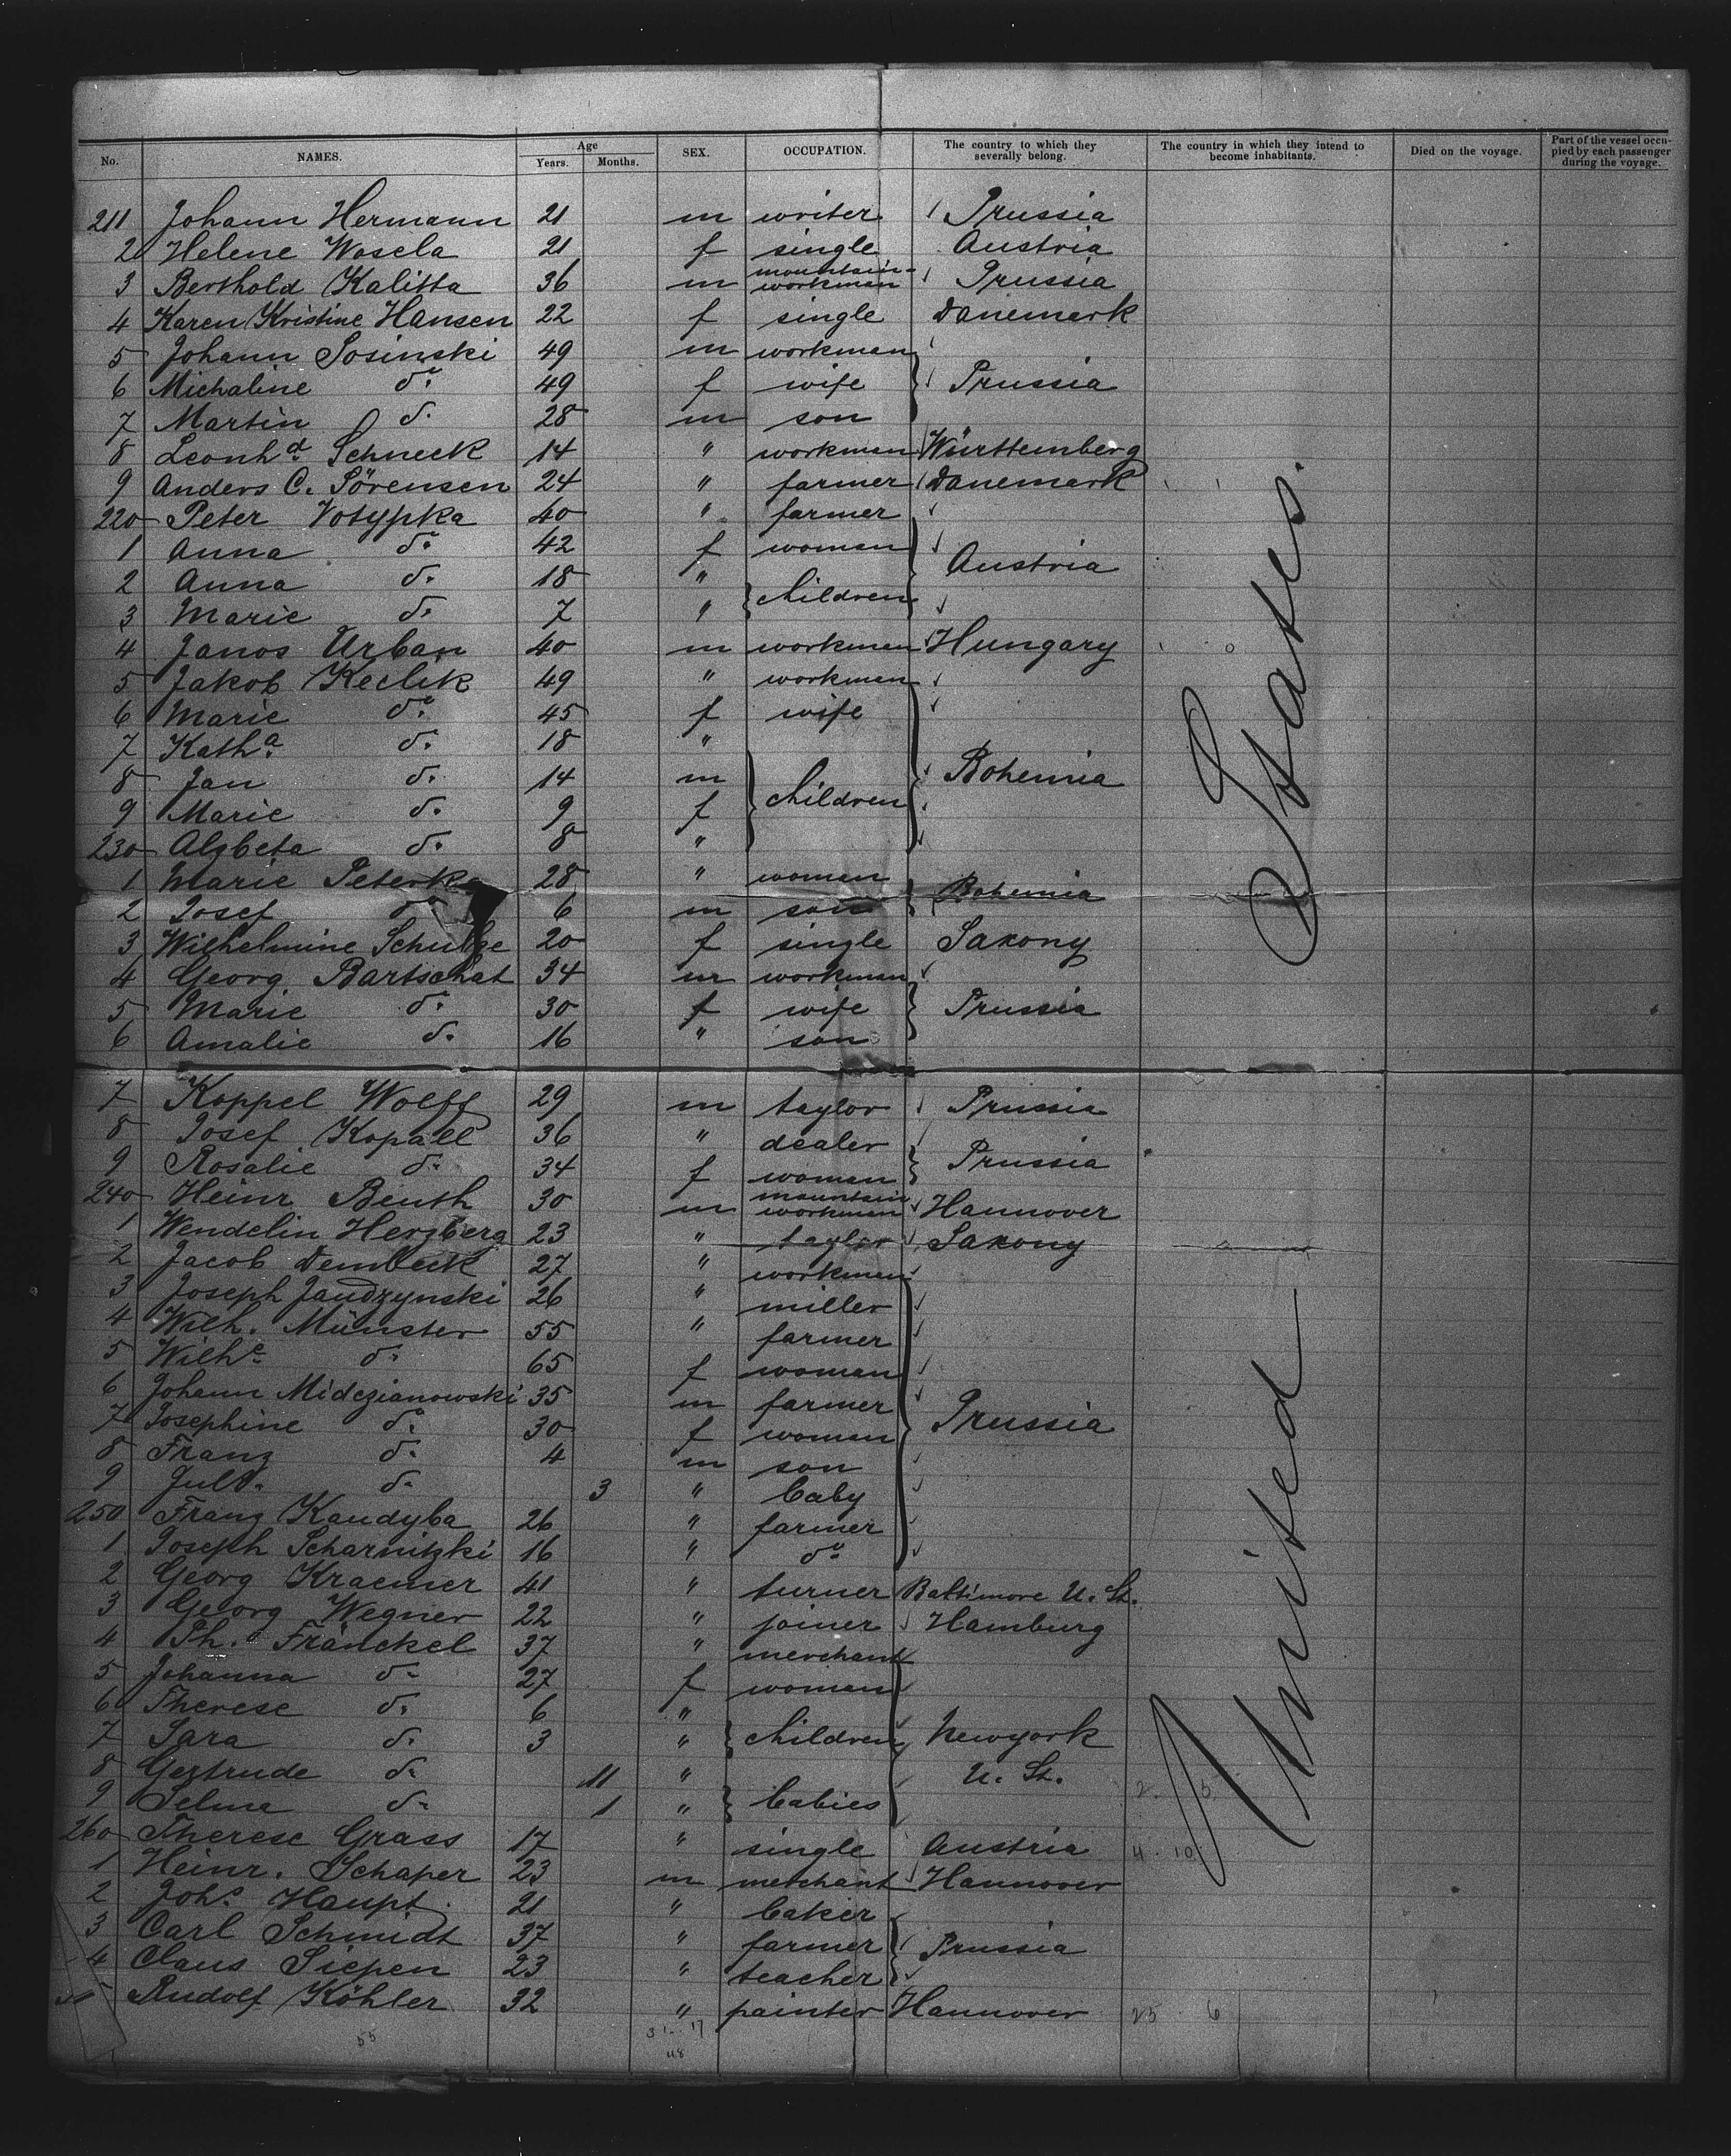 No. NAMES. Age Years. Months. SEX. OCCUPATION. The country to which they severally belong. The country in which they intend to become inhabitants. Died on the voyage. Part of the vessel occupied by each passenger during the voyage.
211 Johann Hermann 21 m writer Prussia
2 Helene Wosela 21 f single Austria
3 Berthold Kalitta 36 m mountain-workman Prussia
4 Karen Kristine Hansen 22 f single Danemark
5 Johann Sosinski 49 m workman
6 Michaline do. 49 f wife Prussia
7 Martin do. 28 m son
8 Leonhd. Schneck 14 " workman Württemberg
9 Anders C. Sörensen 24 " farmer Danemark
220 Peter Votypka 40 " farmer
1 Anna do. 42 f woman Austria
2 Anna do. 18 " children
3 Marie do. 7 "
4 Janos Urban 40 m workman Hungary
5 Jakob Keclik 49 " workman
6 Marie do. 45 f wife
7 Katha. do. 18 "
8 Jan do. 14 m children Bohemia
9 Marie do. 9 f
230 Alzbeta do. 8 "
1 Marie Peterka 28 " woman Bohemia
2 Josef do. 6 m son
3 Wilhelmine Schulze 20 f single Saxony
4 Georg Bartschat 34 m workman
5 Marie do. 30 f wife Prussia
6 Amalie do. 16 " son
7 Koppel Wolff 29 m taylor Prussia
8 Josef Kopall 36 " dealer Prussia
9 Rosalie do. 34 f woman
240 Heinr Beuth 30 m mountain workman Hannover
1 Wendelin Herzberg 23 " taylor Saxony
2 Jacob Dembeck 27 " workman
3 Joseph Jandzynski 26 " miller
4 Wilh. Münster 55 " farmer
5 Wilhe. do. 65 f woman
6 Johann Midczianowski 35 m farmer Prussia
7 Josephine do. 30 f woman
8 Franz do. 4 m son
9 Juls. do. 3 " baby
250 Franz Kandyba 26 " farmer
1 Joseph Scharnitzki 16 " do.
2 Georg Kraemer 41 " turner Baltimore U. St.
3 Georg Wegner 22 " joiner Hamburg
4 Ph. Fränckel 37 " merchant
5 Johanna do. 27 f woman
6 Therese do. 6 " children Newyork
7 Sara do. 3 "
8 Gertrude do. 11 " babies U. St.
9 Selma do. 1 "
260 Therese Grass 17 " single Austria
1 Heinr. Schaper 23 m merchant Hannover
2 Johs. Haupt 21 " baker
3 Carl Schmidt 37 " farmer Prussia
4 Claus Siepen 23 " teacher
5 Rudolf Köhler 32 " painter Hannover
United States.
55
31 17
48
4 10
25 6